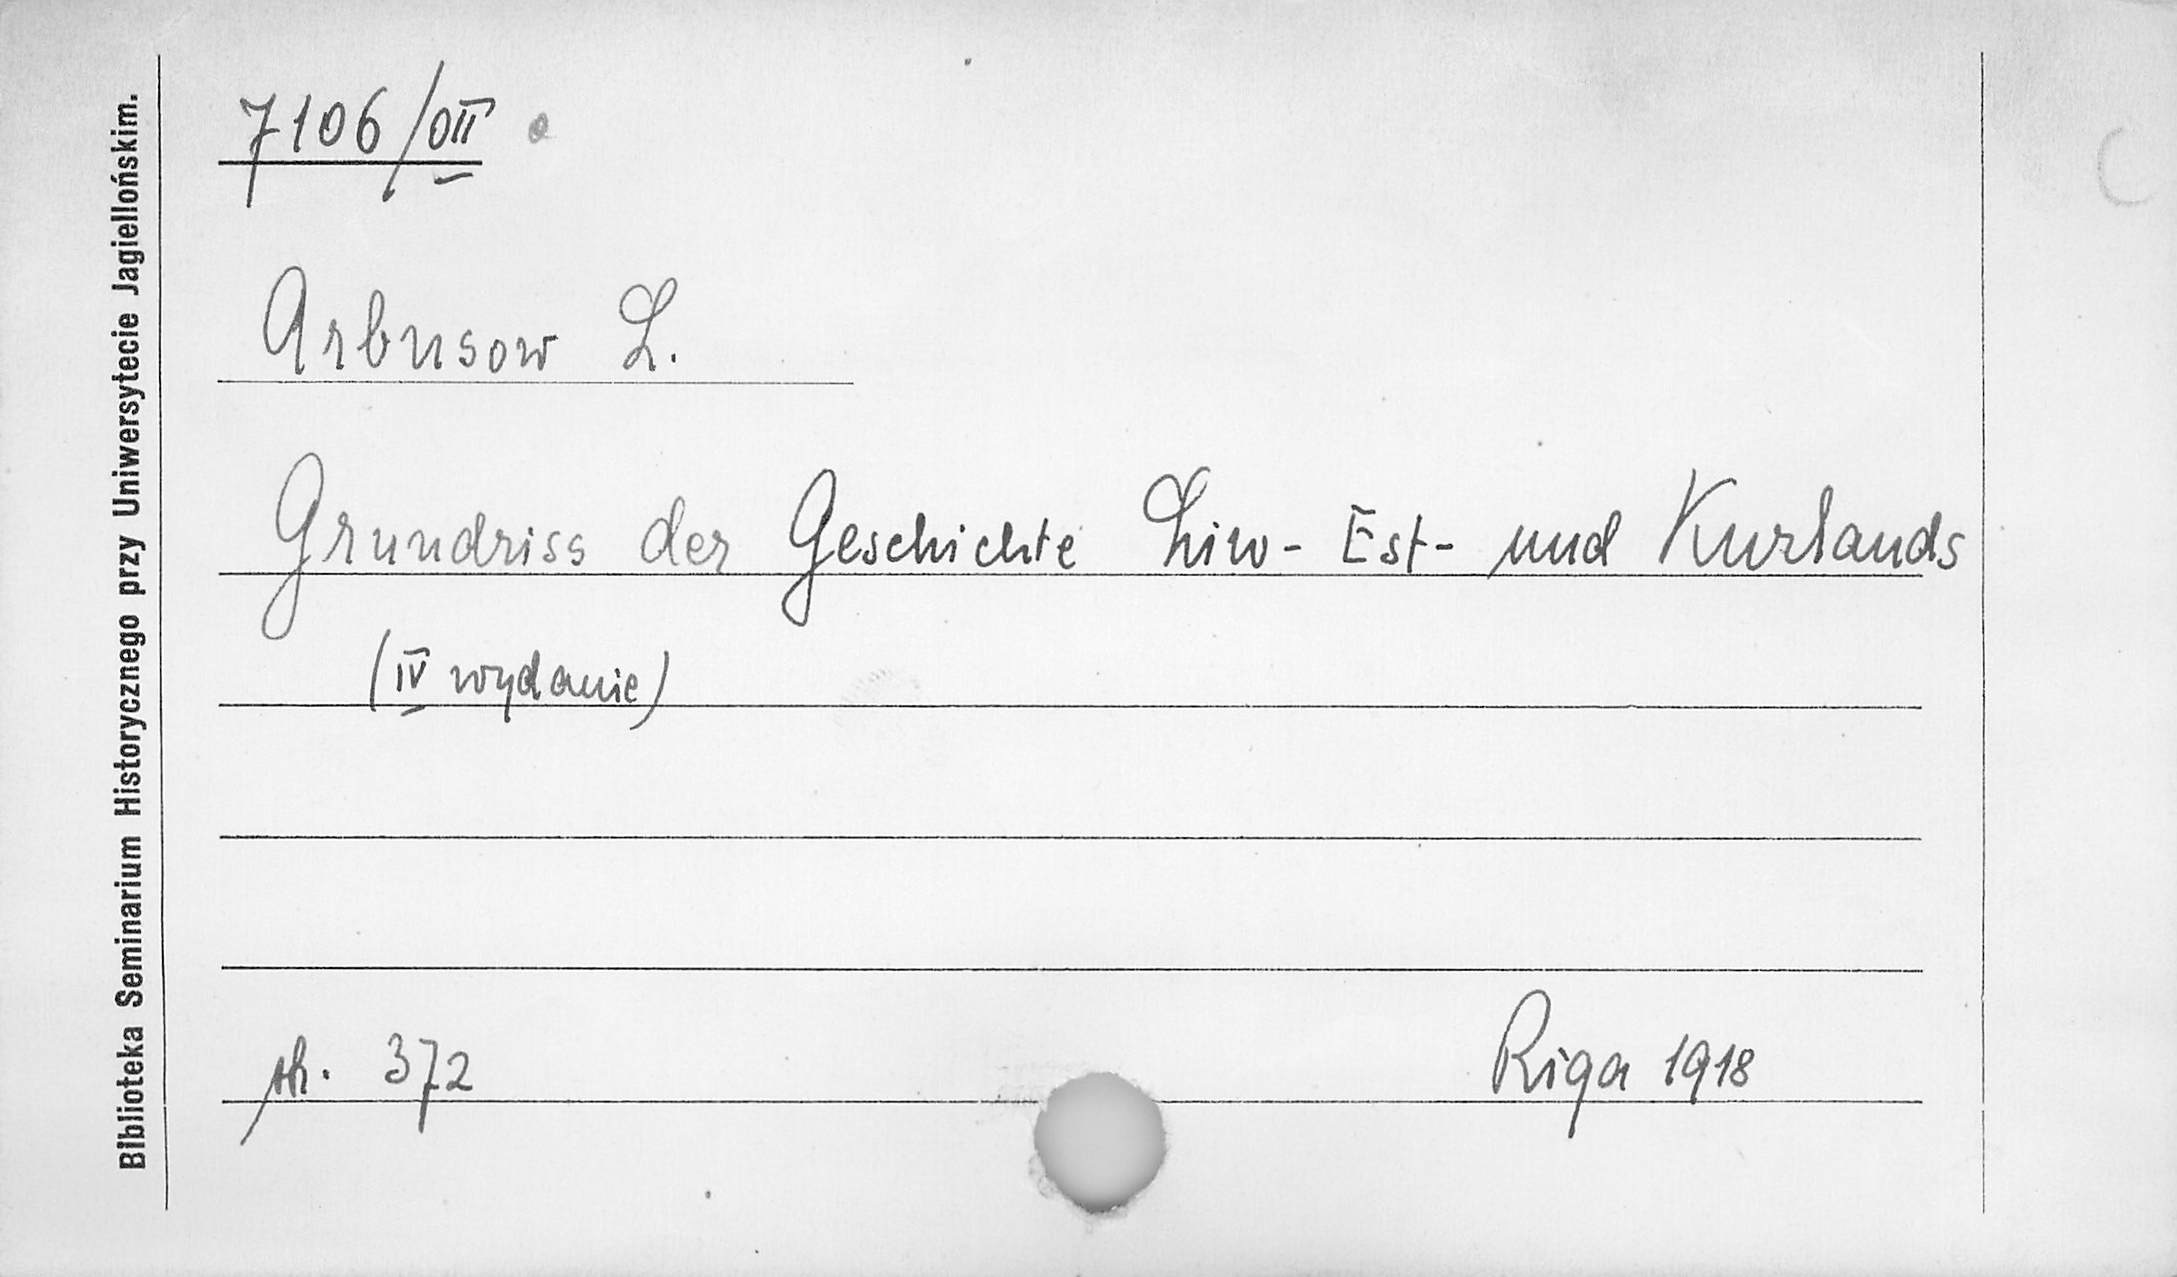 Biblioteka Seminarium Historycznego przy Uniwersytecie Jagiellońskim.
7106/OII
Arbusow L.
Grundriss der Geschichte Liw- Est- und Kurlands
(IV wydanie)
str. 372
Riga 1918